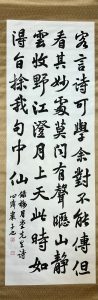 客言詩可學余對不能傳但
看其妙處莫問有聲聯山靜
雲收野江澄月上天此時如
得旨探我句中仙
錄
月堂先生詩
心濟